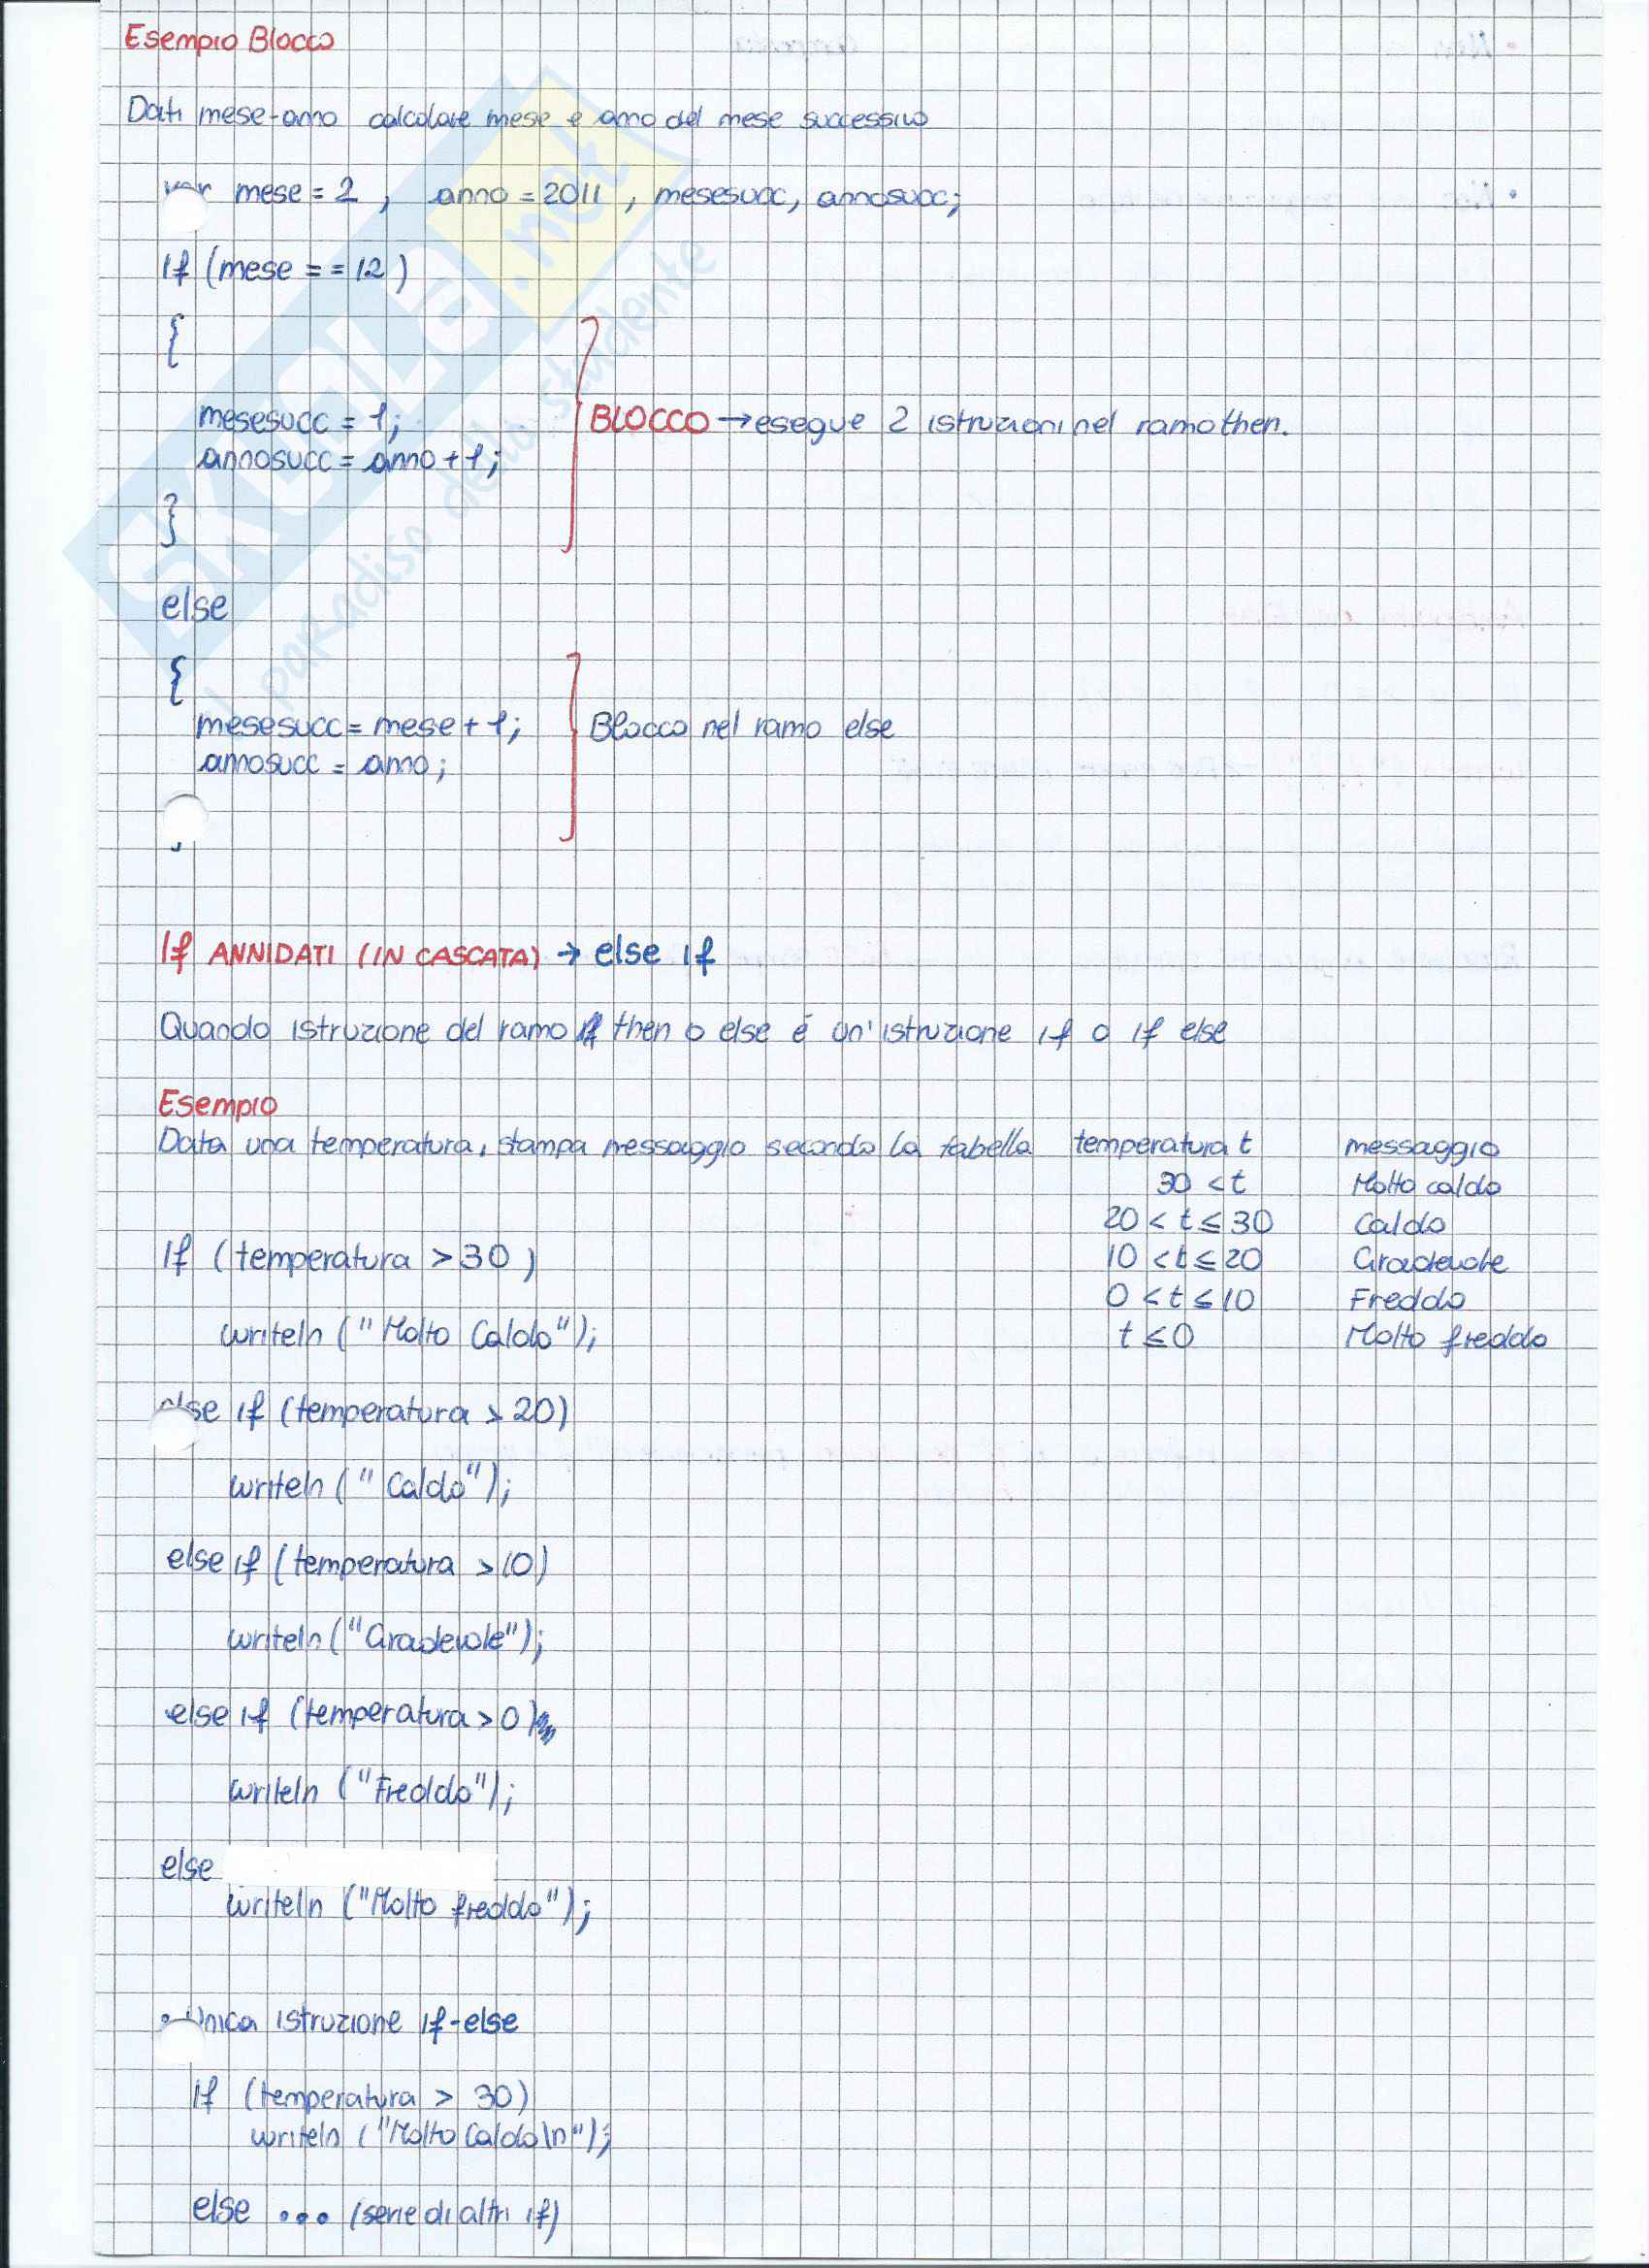 Esempio Blocco
Dati mese-anno calcolare mese e anno del mese successivo
var mese = 2 , anno = 2011 , mesesucc, annosucc;
If (mese = = 12)
{
mesesucc = 1;
annosucc = anno + 1;
}
BLOCCO → esegue 2 istruzioni nel ramo then.
else
{
mesesucc = mese + 1;
annosucc = anno;
Blocco nel ramo else
If ANNIDATI (IN CASCATA) → else If
Quando istruzione del ramo then o else é un' istruzione If o If else
Esempio
Data una temperatura, stampa messaggio secondo la tabella
temperatura t messaggio
30 < t Molto caldo
20 < t ≤ 30 Caldo
10 < t ≤ 20 Gradevole
0 < t ≤ 10 Freddo
t ≤ 0 Molto freddo
If (temperatura > 30)
writeln ("Molto Caldo");
else If (temperatura > 20)
writeln (" Caldo");
else If (temperatura > 10)
writeln ("Gradevole");
else If (temperatura > 0)
writeln ("Freddo");
else
writeln ("Molto freddo");
• Unica istruzione If-else
If (temperatura > 30)
writeln ("Molto Caldo\n");
else ... (serie di altri If)
SKUOLA.net
il paradiso dello studente